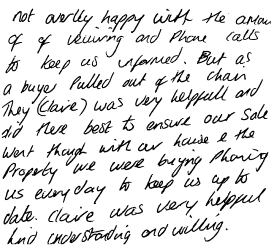 not overlly happy with the amoun
of of veiwing and Phone calls
to keep us informed. But as
a buyer Pulled out of the chain
They (Claire) was very helpfull and
did there best to ensure our sale
went though with our house & the
Property we were buying Phoning
us everyday to keep us up to
date. Claire was very helpful
kind understanding and willing.